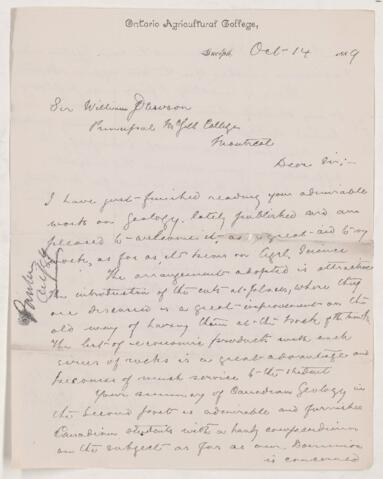 Ontario Agricultural College,
Guelph, Oct 14 1889
Sir William Dawson
Principal McGill College
Montreal
Dear Sir;-
I have just finished reading your admirable
work on Geology lately published and am
pleased to welcome it as a great aid to my
work, as far as it bears on Agrl. Science
The arrangement adopted is attractive
The introduction of the cuts at places, where they
are discussed is a great improvement on the
old way of having them at the back of the book
The list of economic products with each
series of rocks is a great advantage and
becomes of much service to the student
Your summary of Canadian Geology in
the second part is admirable and furnishes
Canadian students with a handy compendium
on the subject as far as our Dominion
is concerned
Oct